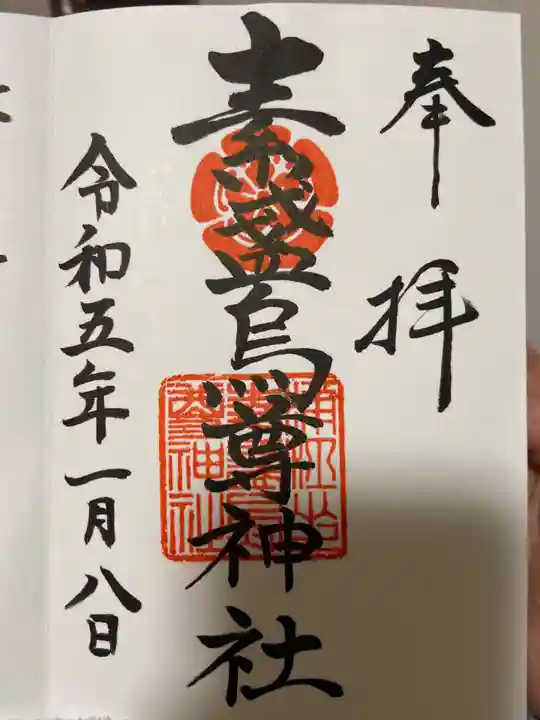 奉拝
素盞嗚尊神社
令和五年一月八日